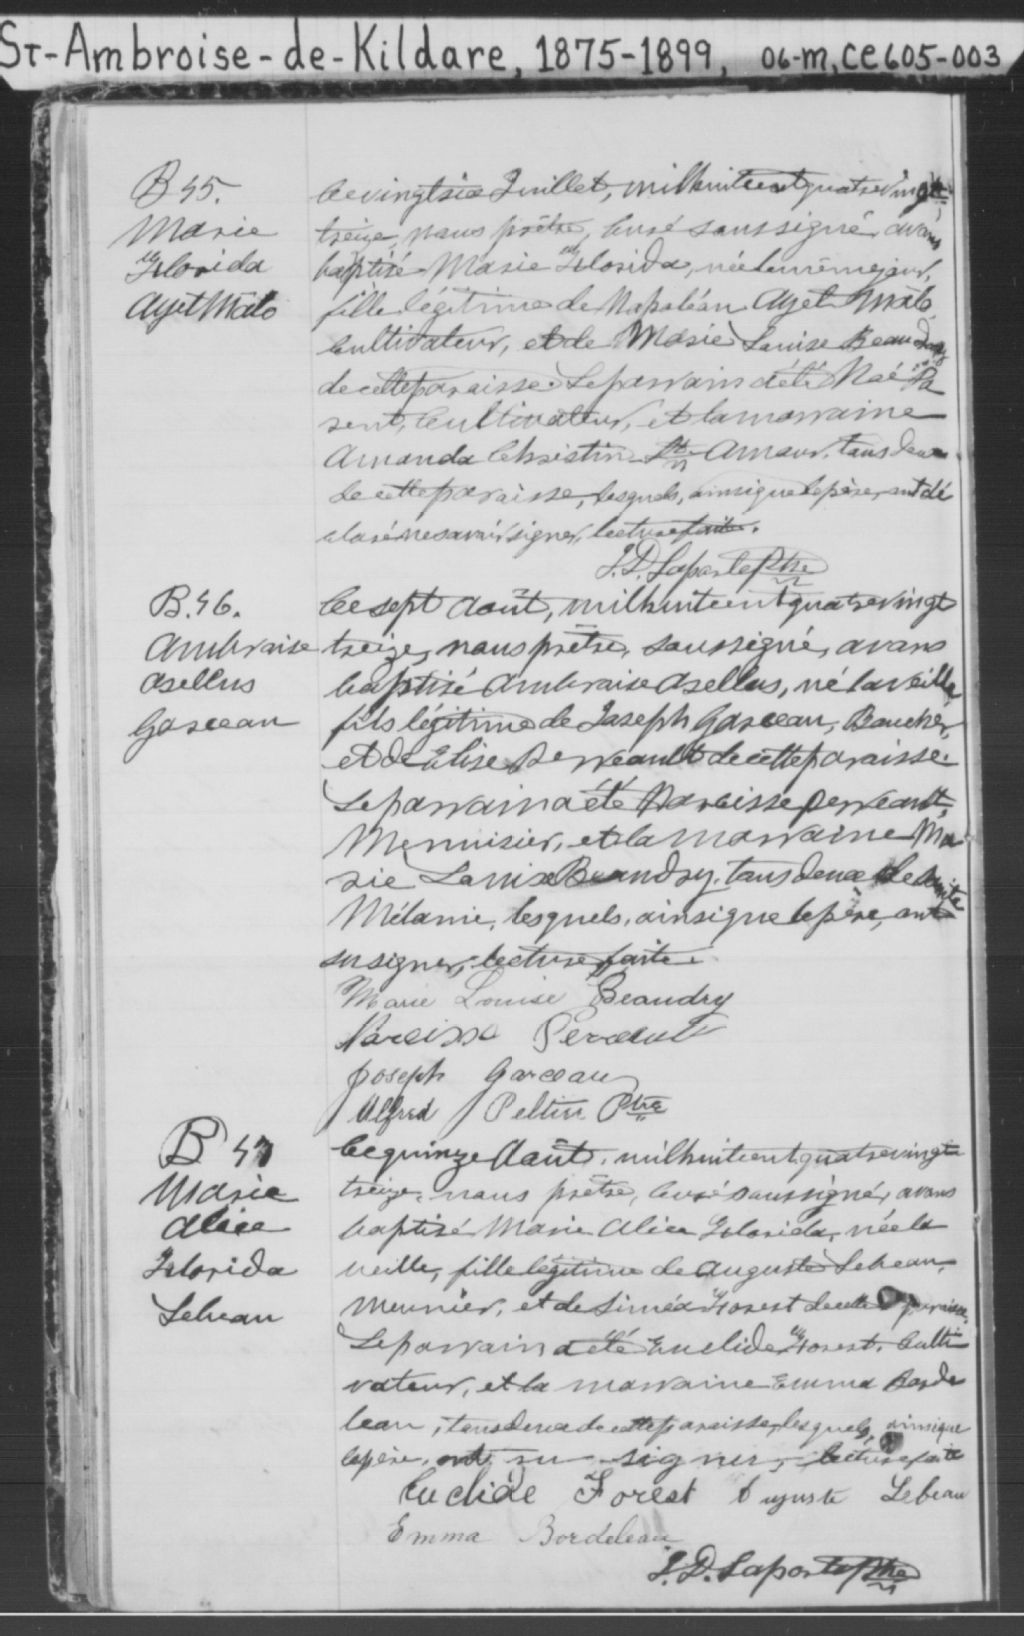 St-Ambroise-de-Kildare, 1875-1899, 06-M, CE605-003
B 45.
Marie
Florida
Ayet Malo
Ce vingt six Juillet, mil huit cent quatre vingt
treize, nous prêtre, curé soussigné avons
baptisé Marie Florida, née le même jour,
fille légitime de Napoléon Ayet Malo
cultivateur, et de Marie Louise Beaudry
de cette paroisse. Le parrain a été Noé Pa
rent, cultivateur, et la marraine
Amanda Christin St Amour, tous deux
de cette paroisse, lesquels, ainsi que le père, ont dé
claré ne savoir signer, lecture faite.
J. D. Laporte Ptre
B. 46.
Ambroise
Asellus
Garceau
Ce sept Août, mil huit cent quatre vingt
treize, nous prêtre, soussigné, avons
baptisé Ambroise Asellus, né la veille,
fils légitime de Joseph Garceau, Boucher,
et de Elise Perreault de cette paroisse.
Le parrain a été Narcisse Perreault,
Menuisier, et la marraine Ma
rie Louise Beaudry, tous deux de Sainte
Mélanie, lesquels, ainsi que le père, ont
su signer, lecture faite.
Marie Louise Beaudry
Narcisse Perault
Joseph Garceau
Alfred Pelltier Ptre
B 47
Marie
Alice
Florida
Lebeau
Ce quinze Août, mil huit cent quatre vingt
treize, nous prêtre, curé soussigné, avons
baptisé Marie Alice Florida, née la
veille, fille légitime de Auguste Lebeau,
Meunier, et de Siméa Forest de cette paroisse.
Le parrain a été Euclide Forest, culti
vateur, et la marraine Emma Borde
leau, tous deux de cette paroisse, lesquels, ainsi que
le père, ont su signer, lecture faite
Euclide Forest Auguste Lebeau
Emma Bordeleau
J. D. Laporte Ptre